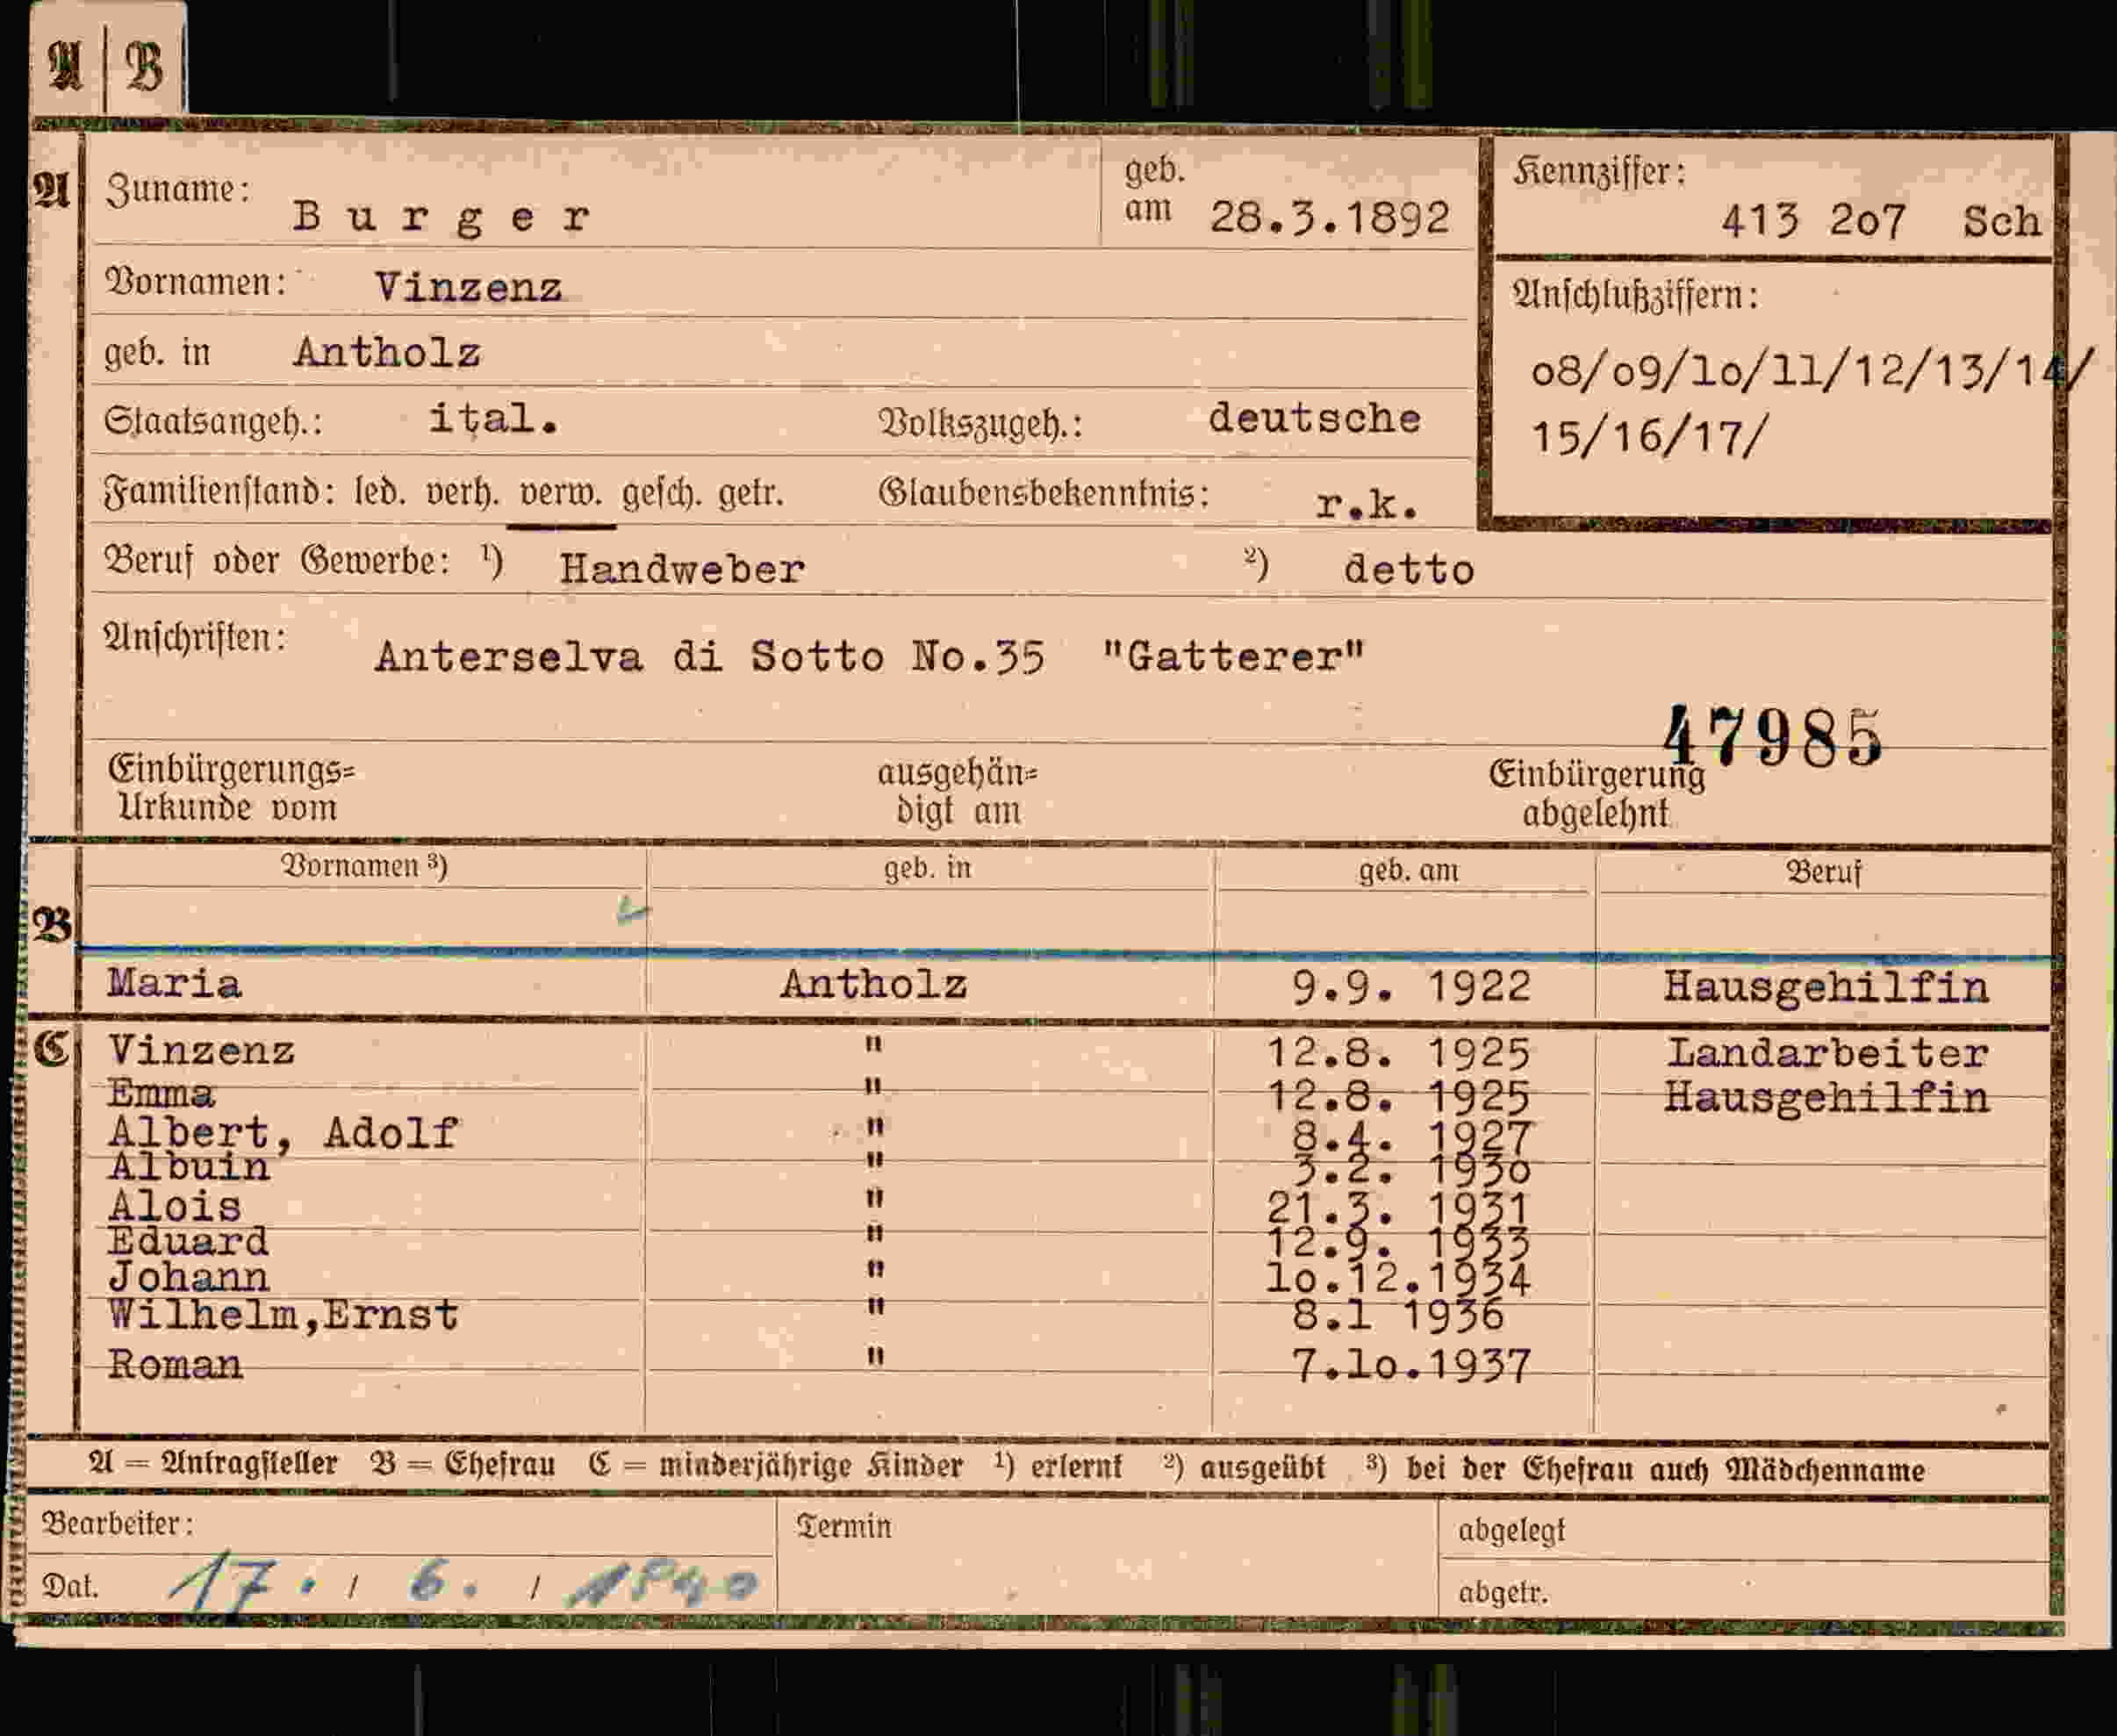 A | B
A Zuname: Burger geb. am 28.3.1892 Kennziffer: 413 2o7 Sch
Vornamen: Vinzenz
Anschlußziffern:
geb. in Antholz
o8/o9/lo/ll/12/13/14/
Staatsangeh.: ital. Volkszugeh.: deutsche
15/16/17/
Familienstand: led. verh. verw. gesch. getr. Glaubensbekenntnis: r.k.
Beruf oder Gewerbe: ¹) Handweber ²) detto
Anschriften: Anterselva di Sotto No.35 "Gatterer"
47985
Einbürgerungs= ausgehän= Einbürgerung
Urkunde vom digt am abgelehnt
Vornamen ³) geb. in geb. am Beruf
B
Maria Antholz 9.9. 1922 Hausgehilfin
C Vinzenz " 12.8. 1925 Landarbeiter
Emma " 12.8. 1925 Hausgehilfin
Albert, Adolf " 8.4. 1927
Albuin " 3.2. 193o
Alois " 21.3. 1931
Eduard " 12.9. 1933
Johann " lo.12.1934
Wilhelm,Ernst " 8.l 1936
Roman " 7.lo.1937
A = Antragsteller B = Ehefrau C = minderjährige Kinder ¹) erlernt ²) ausgeübt ³) bei der Ehefrau auch Mädchenname
Bearbeiter: Termin abgelegt
Dat. 17. / 6. / 1940 abgetr.